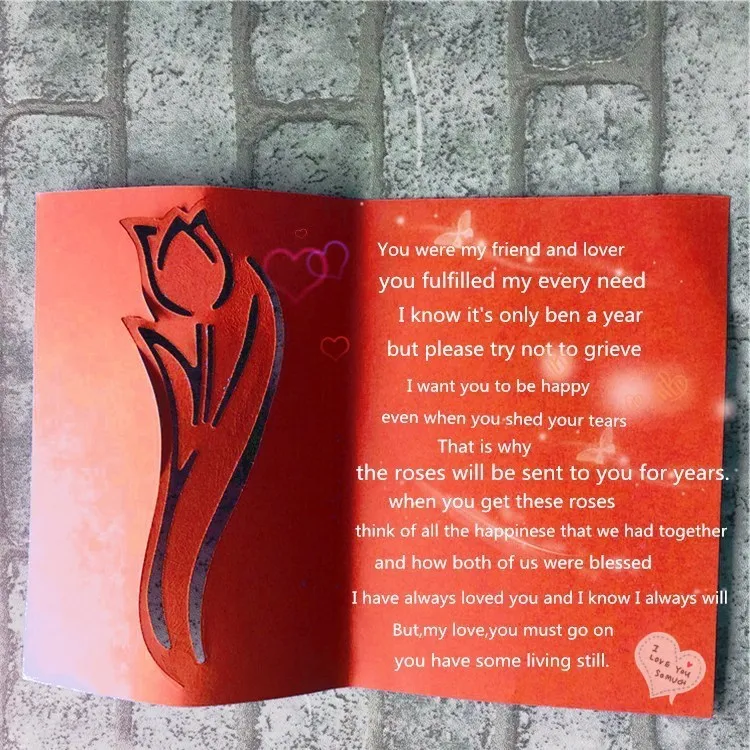 You were my friend and lover
you fulfilled my every need
I know it's only ben a year
but please try not to grieve
I want you to be happy
even when you shed your tears
That is why
the roses will be sent to you for years.
when you get these roses
think of all the happinese that we had together
and how both of us were blessed
I have always loved you and I know I always will
But,my love,you must go on
you have some living still.
I
Love You
So Much